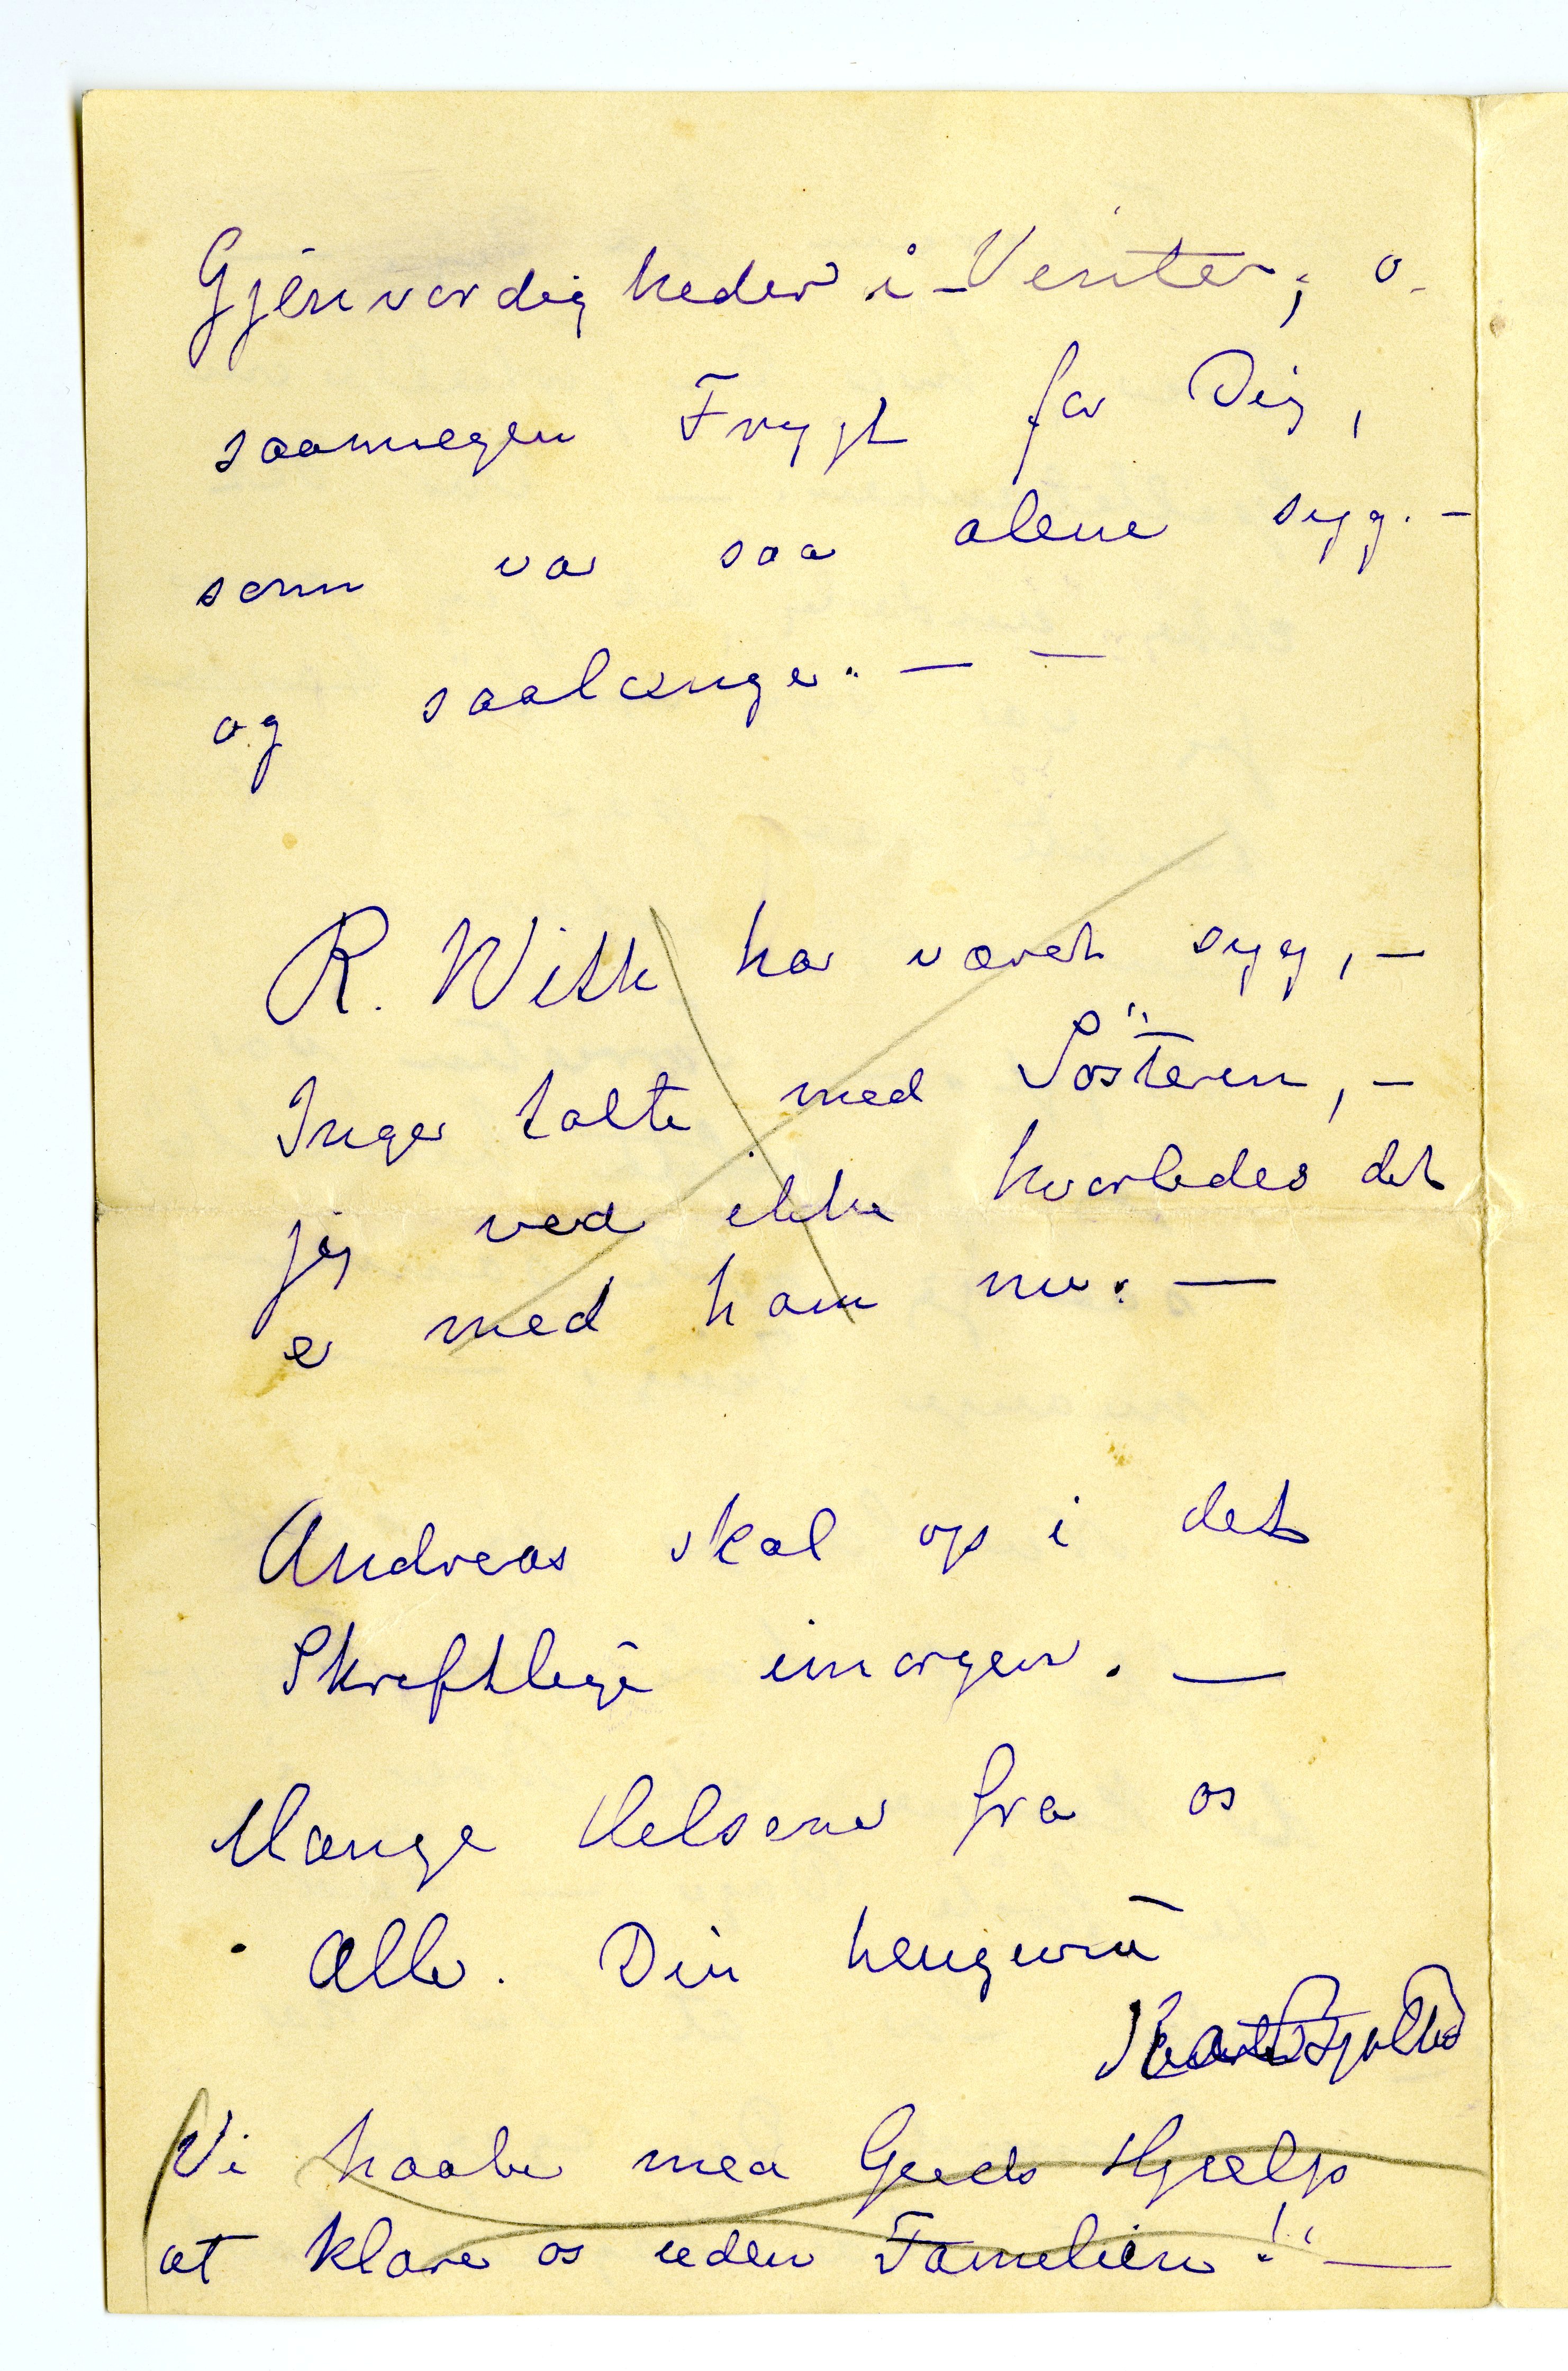 Gjenvordigheder i-Venter; o-
saamegen Frygt for Dig,
som var saa alene syg. -
og saalænge. — —
R. Witk har været syg, -
Inger talte med Søsteren, -
jeg ved ikke hvorledes det
er med ham nu. —
Andreas skal op i det
Skreftlige imorgen. —
Mange Helsener fra os
Alle. Din hengivne
Vi haaber med Guds Hjælp
at klare os uden Familien! —